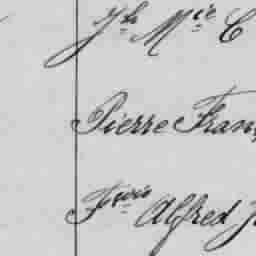 Jh Mie C
Pierre Fran
Fcois Alfred J